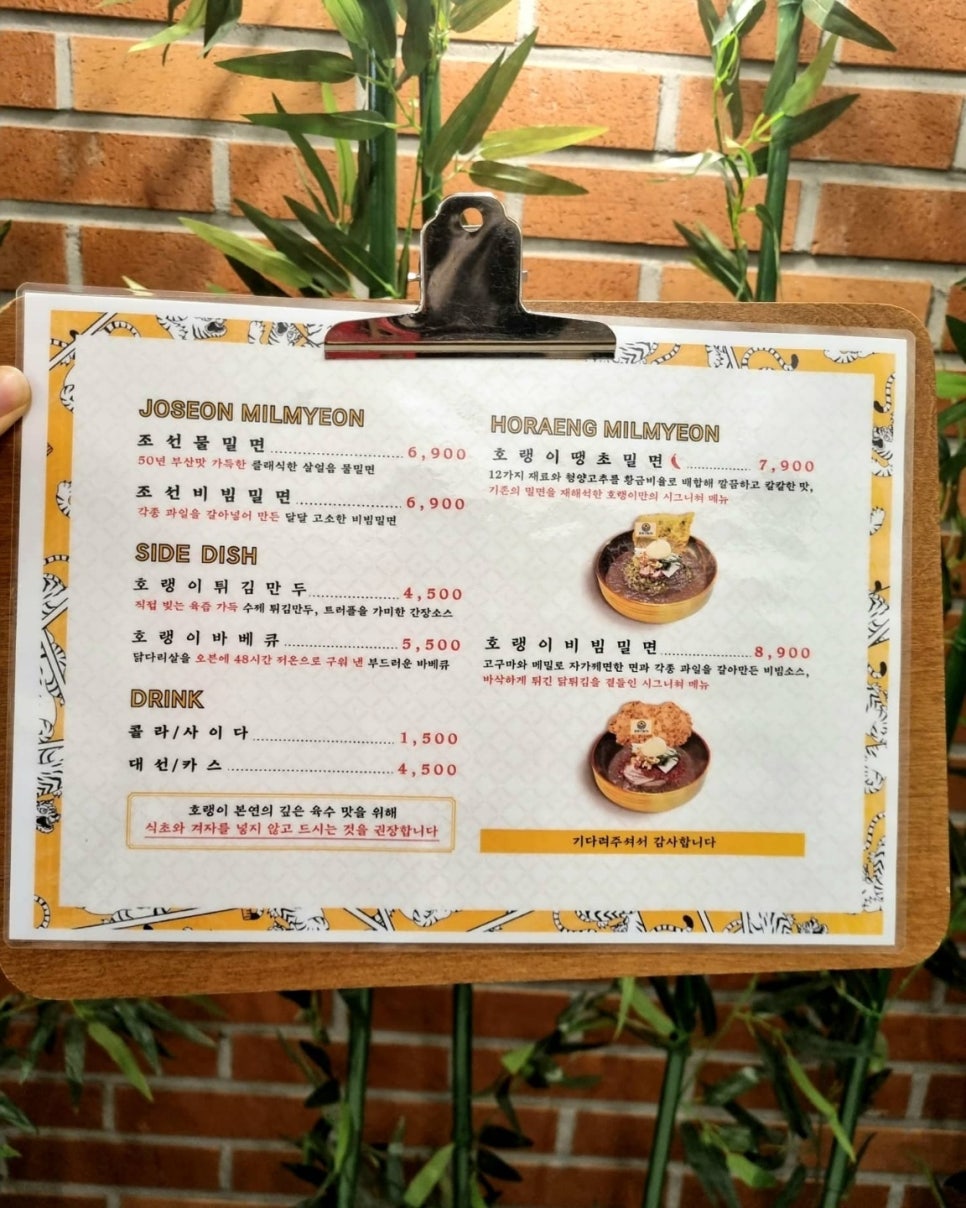 JOSEON MILMYEON
조선물밀면 6,900
50년 부산맛 가득한 클래식한 살얼음 물밀면
조선비빔밀면 6,900
각종 과일을 갈아넣어 만든 달달 고소한 비빔밀면
SIDE DISH
호랭이튀김만두 4,500
직접 빚는 육즙 가득 수제 튀김만두, 트러플을 가미한 간장소스
호랭이바베큐 5,500
닭다리살을 오븐에 48시간 저온으로 구워 낸 부드러운 바베큐
DRINK
콜라/사이다 1,500
대선/카스 4,500
호랭이 본연의 깊은 육수 맛을 위해
식초와 겨자를 넣지 않고 드시는 것을 권장합니다
HORAENG MILMYEON
호랭이땡초밀면 7,900
12가지 재료와 청양고추를 황금비율로 배합해 깔끔하고 칼칼한 맛,
기존의 밀면을 재해석한 호랭이만의 시그니처 메뉴
호랭이비빔밀면 8,900
고구마와 메밀로 자가제면한 면과 각종 과일을 갈아만든 비빔소스,
바삭하게 튀긴 닭튀김을 곁들인 시그니처 메뉴
기다려주셔서 감사합니다